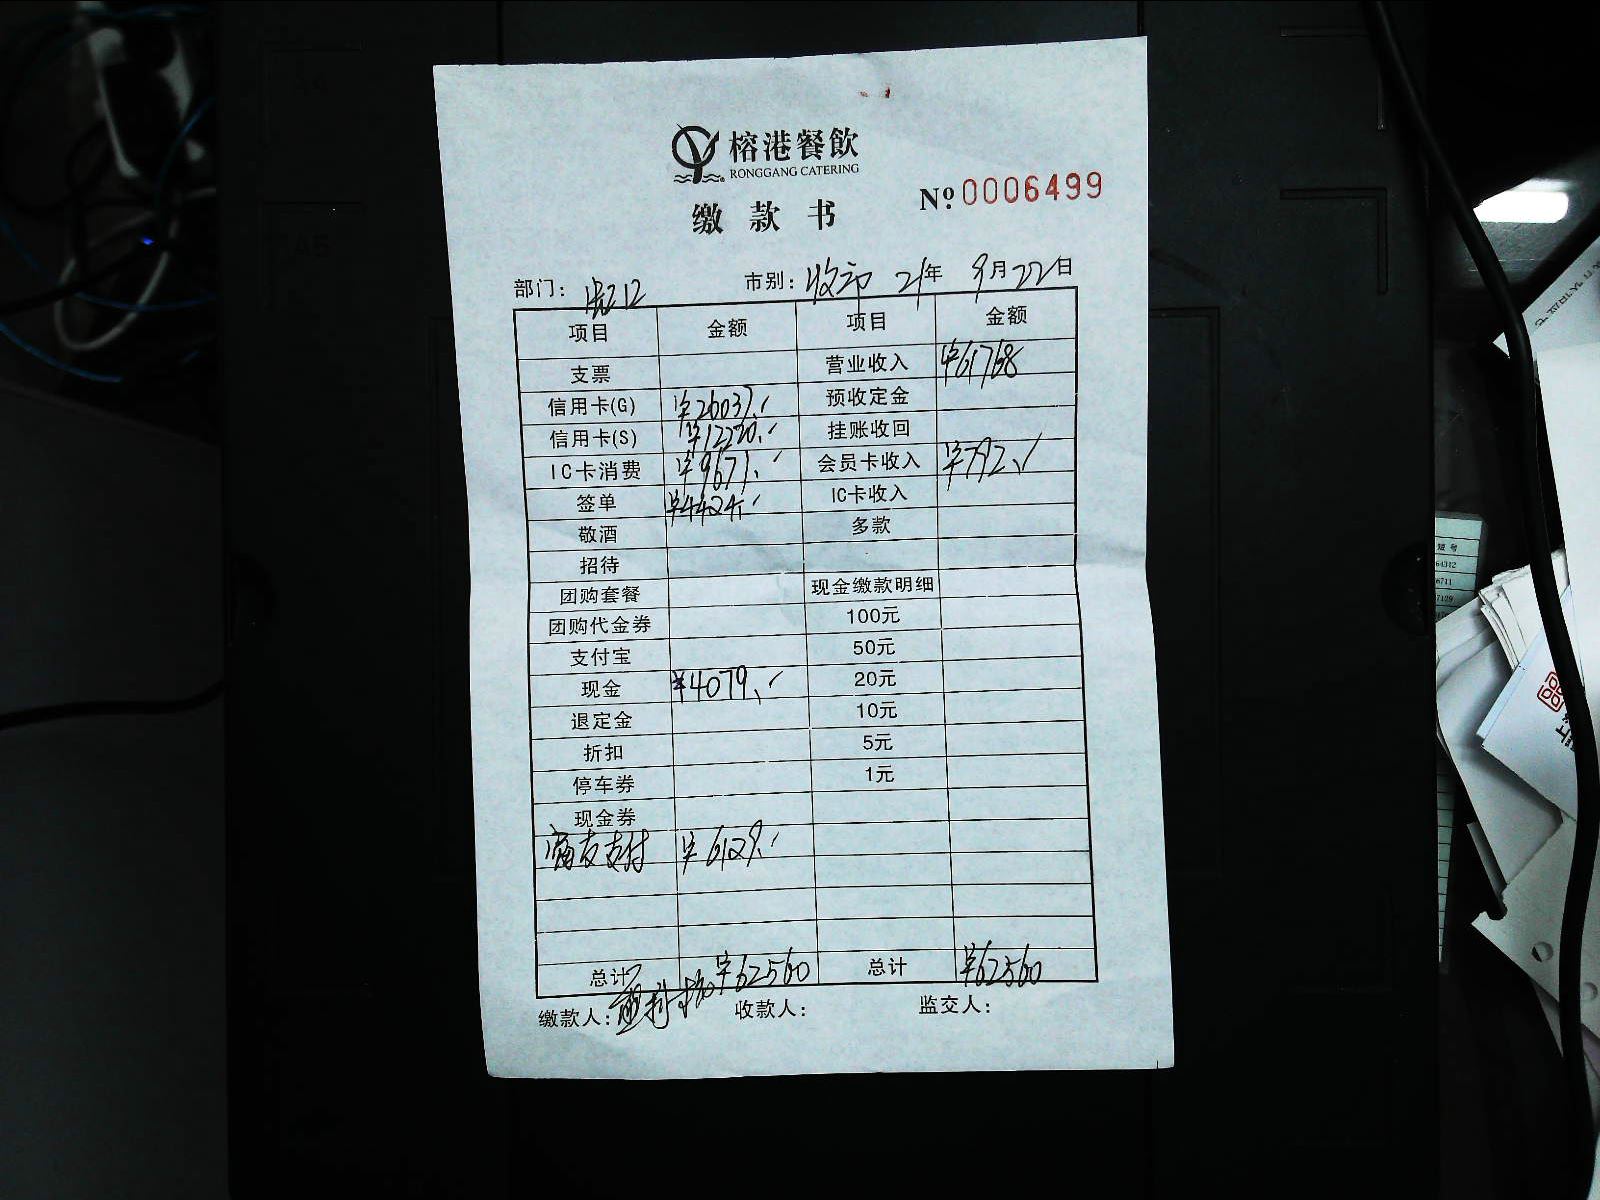 榕港餐飲
RONGGANG CATERING
缴款书
Nº: 0006499
部门： 市别：收市 21年 9月22日
项目 金额 项目 金额
支票 营业收入 ¥61768
信用卡(G) ¥26037. 预收定金
信用卡(S) ¥12220. 挂账收回
IC卡消费 ¥9671. 会员卡收入 ¥792.
签单 ¥4424. IC卡收入
敬酒 多款
招待
团购套餐 现金缴款明细
团购代金券 100元
支付宝 50元
现金 ¥4079. 20元
退定金 10元
折扣 5元
停车券 1元
现金券
富友支付 ¥6129.
总计 ¥62560 总计 ¥62560
缴款人： 收款人： 监交人：